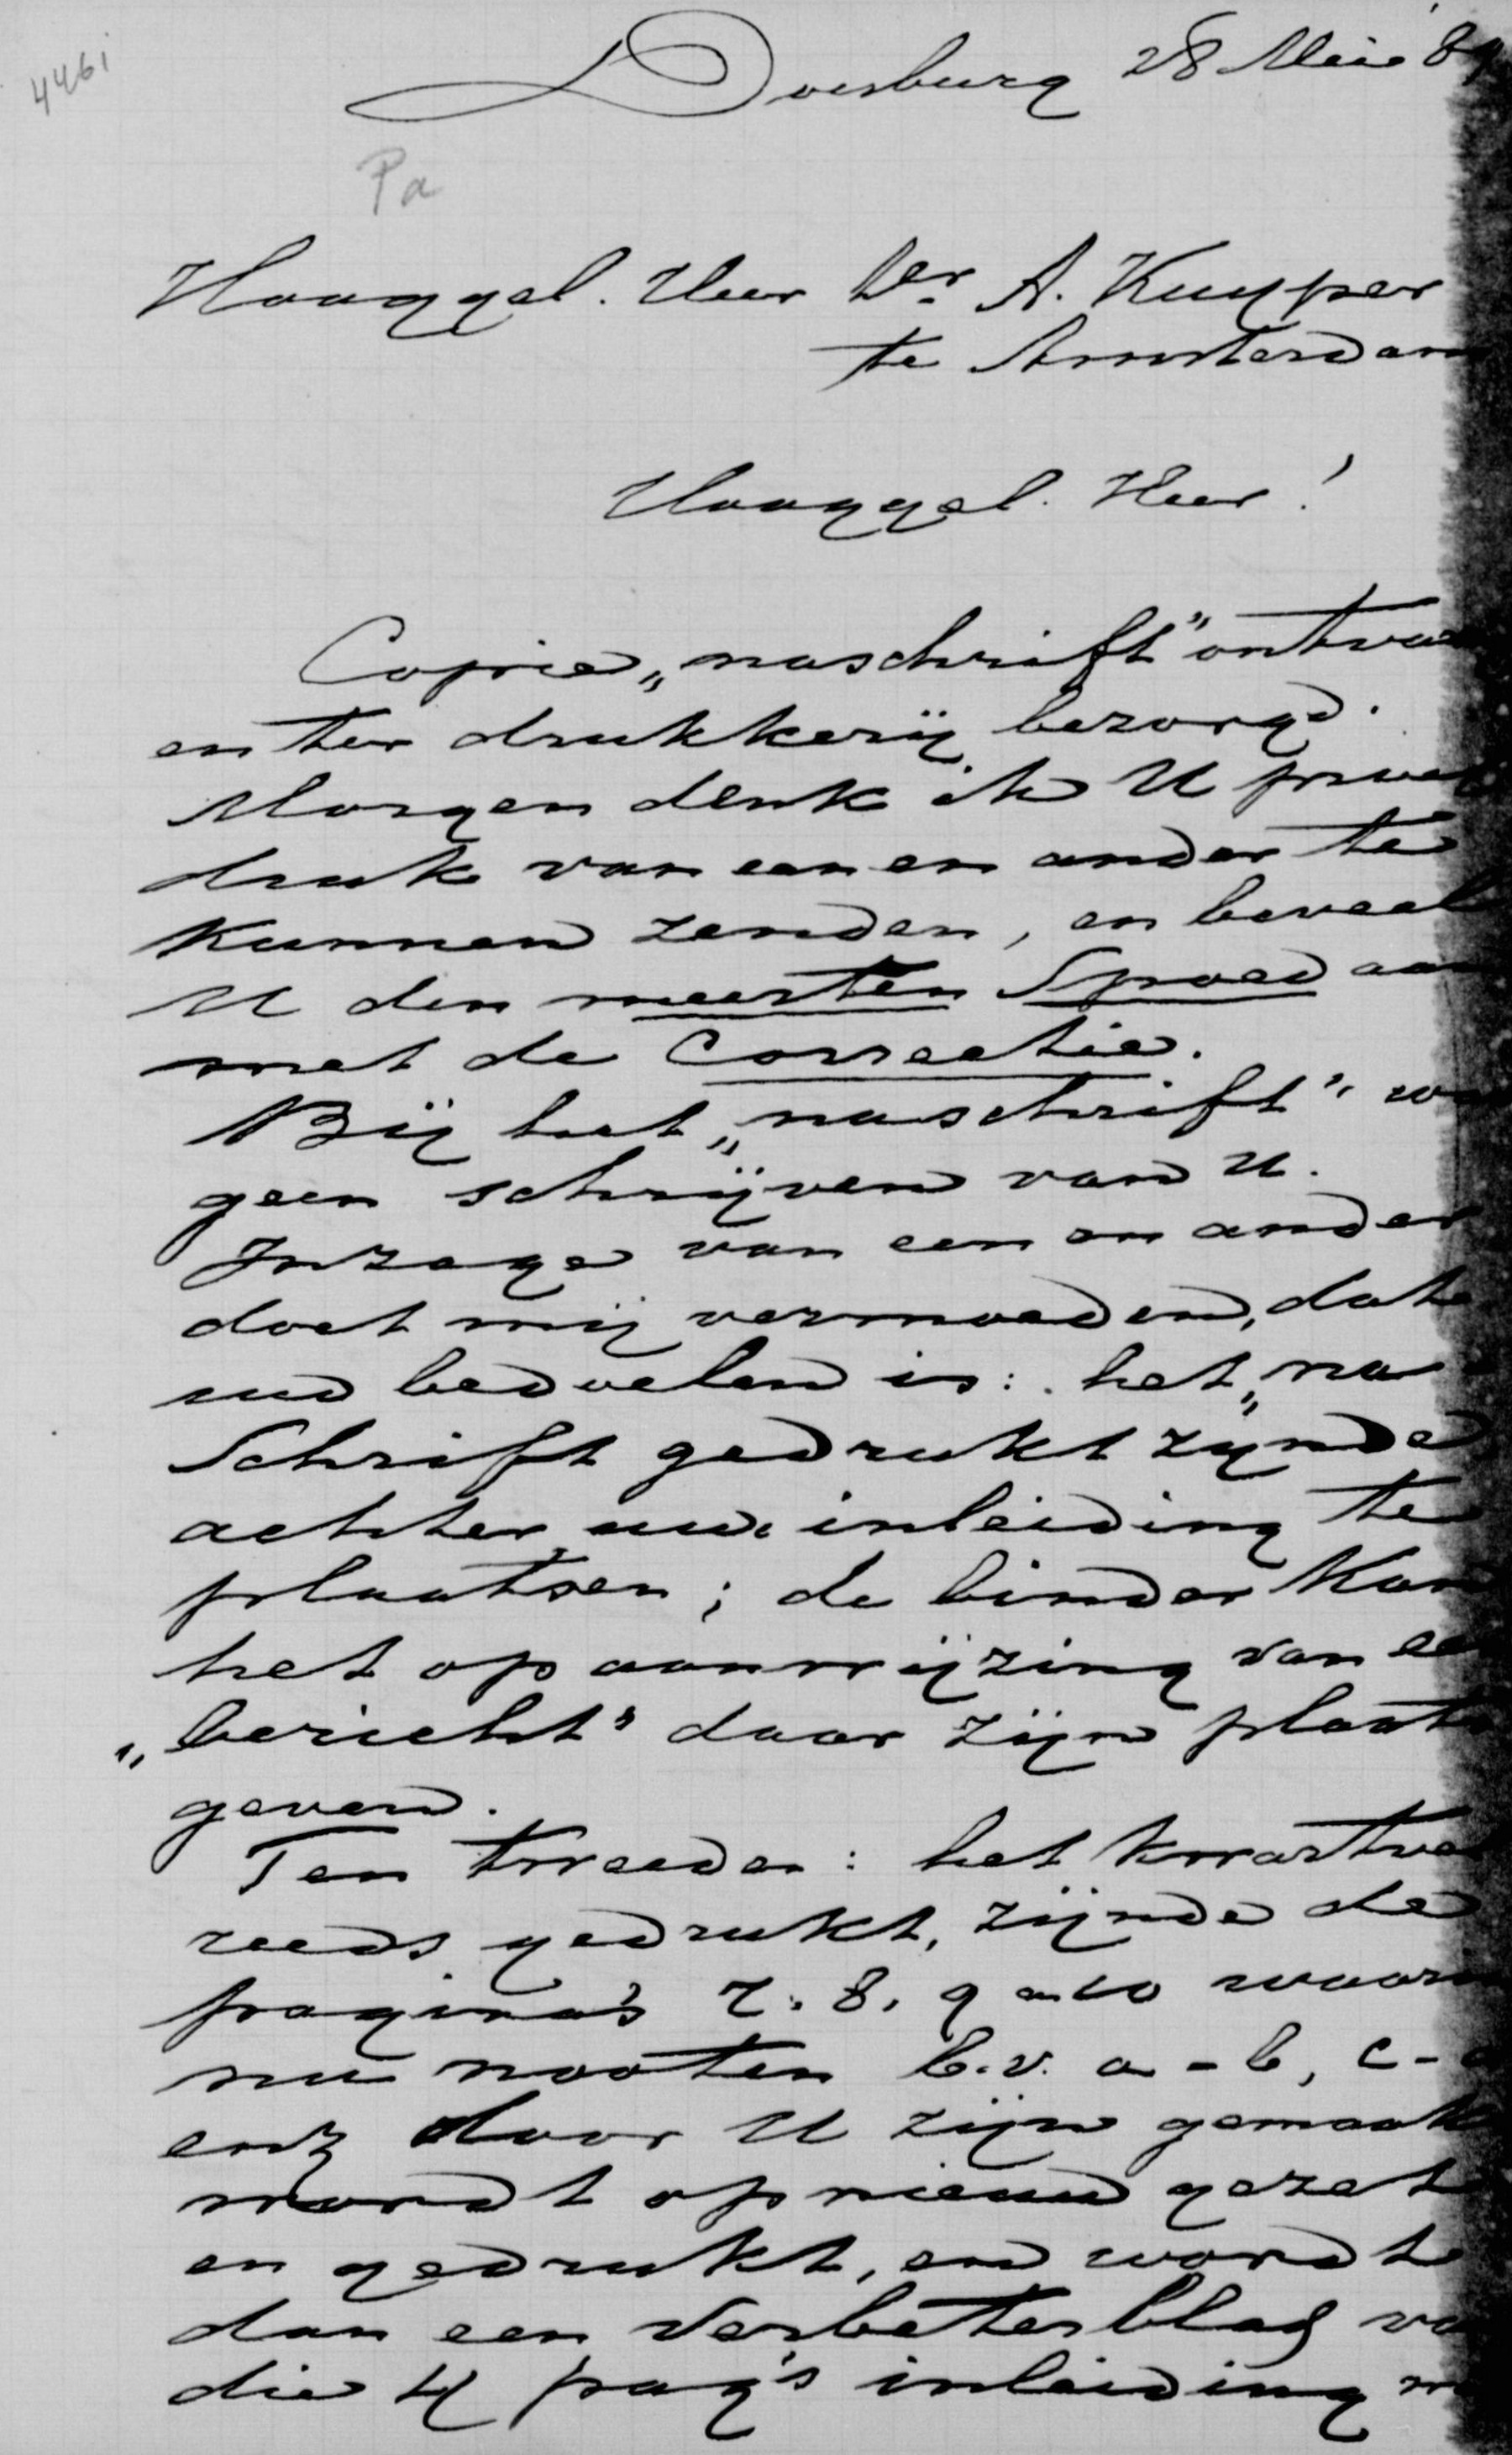 4461
Doesburg 28 Mei '89
Pa
Hooggel. Heer Dr. A. Kuyper
te Amsterdam
Hooggel. Heer!
Copie „naschrift" ontva
en ter drukkerij bezorgd.
Morgen denk ik U proef
druk van een en ander te
kunnen zenden, en beveel
U den meesten Spoed aan
met de Correctie.
Bij het „naschrift" wa
geen schrijven van U.
Inzage van een en ander
doet mij vermoeden, dat
uw bedoelen is: het „na
Schrift gedrukt zijnde
achter uwe inleiding te
plaatsen; de binder kan
het op aanwijzing van ee
„bericht" daar zijn plaats
geven.
Ten tweeden: het kwartve
reeds gedrukt, zijnde de
pagina's 7. 8. 9 en 10 waar
nu nooten b.v. a - b, c -
enz door U zijn gemaakt
wordt op nieuw gezet
en gedrukt, en wordt
dan een Verbeterblad va
die 4 pag's inleiding